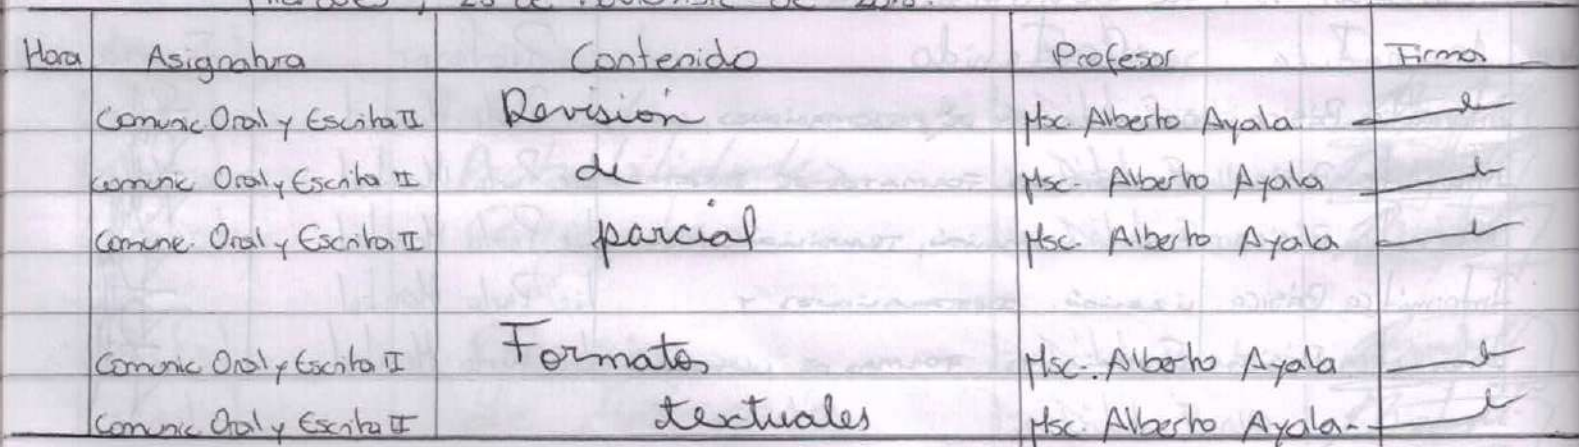 Martes, 20 de noviembre de 2018.
Hora Asignatura Contenido Profesor Firma
Comunic. Oral y Escrita II Revisión Msc. Alberto Ayala
Comunic Oral y Escrita II de Msc. Alberto Ayala
Comunc. Oral y Escrita II parcial Msc. Alberto Ayala
Comunic Oral y Escrita II Formatos Msc. Alberto Ayala
Comunic Oral y Escrita II textuales Msc. Alberto Ayala.